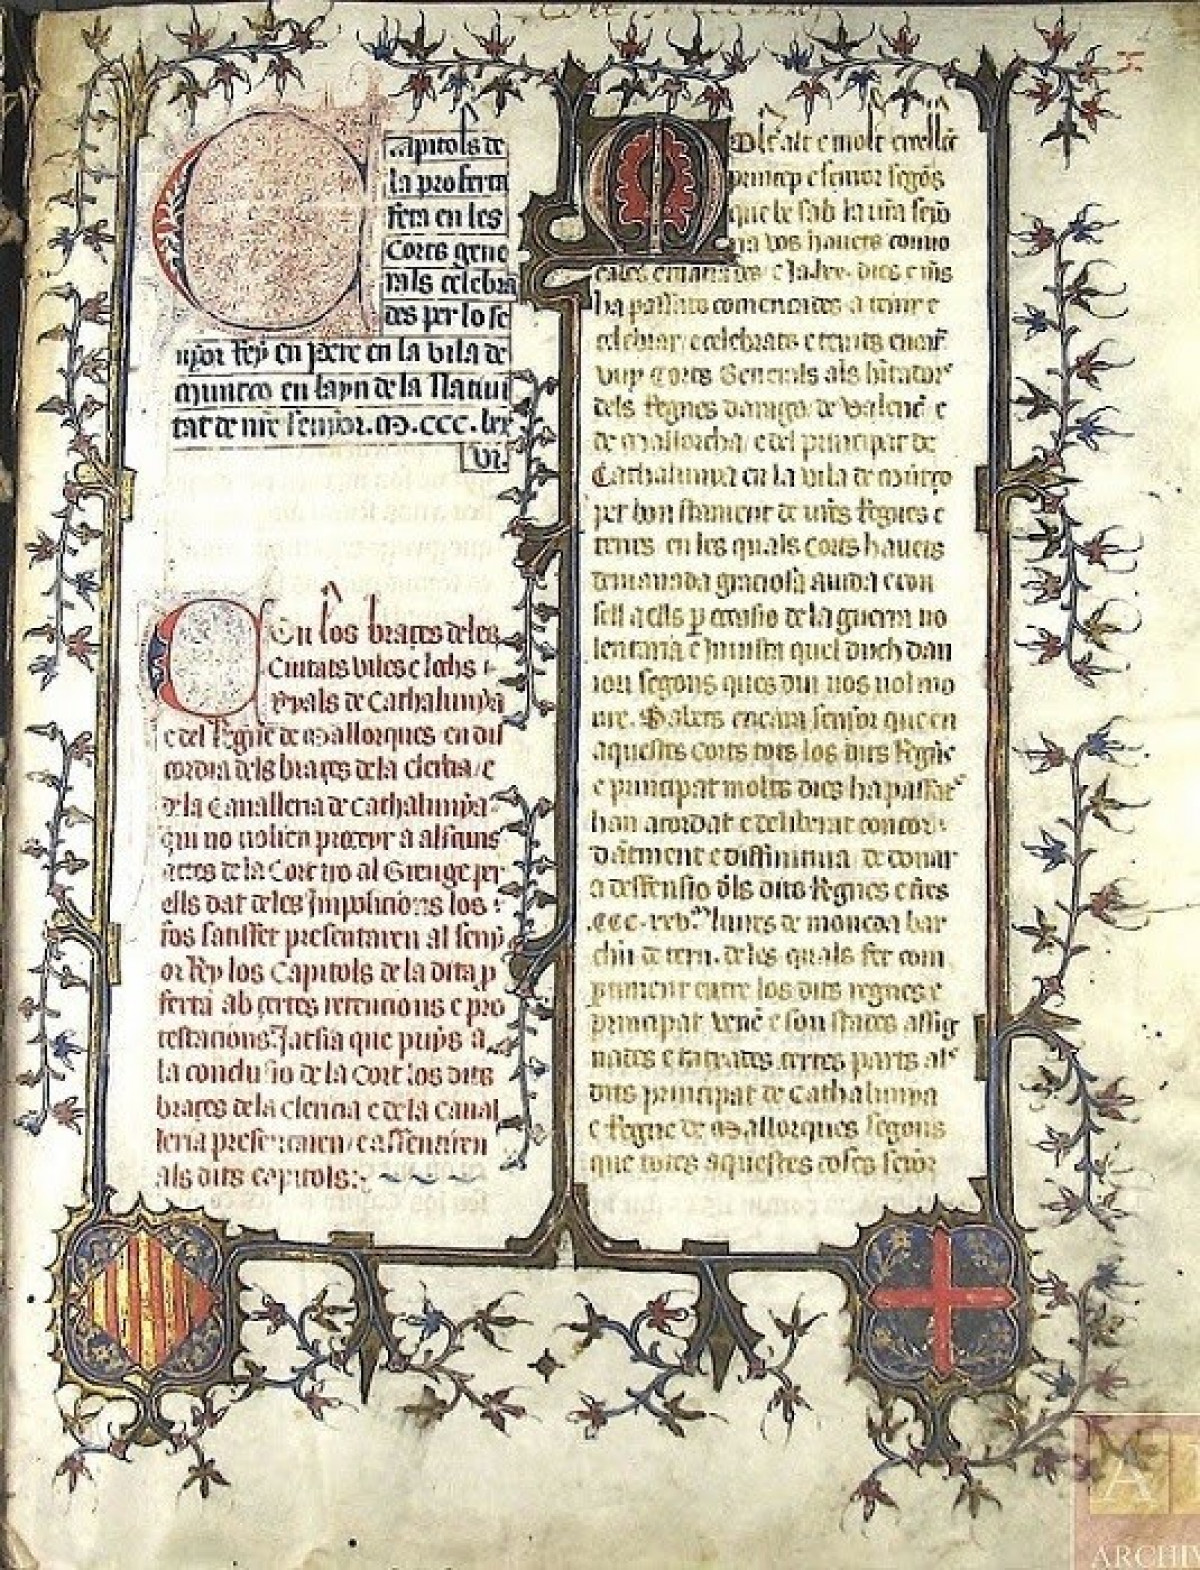 Capitols de
la proferta
feta en les
Corts gene
rals celebra
des per lo se
nyor Rey en Pere en la vila de
Muntço en layn de la Nativi
tat de nre senyor .M.CCC.lxx
vi.
On los braçes deles
Ciutats viles e lochs
Reyals de Cathalunya
e del Regne de Mallorques en dis
cordia dels braçes dela clerecia e
de la Cavalleria de Cathalunya
qui no volien proceyr a alscuns
actes de la Cort tro al Greuge per
ells dat deles Imposicions los
fos satisfet presentaren al seny
or Rey los Capitols de la dita p
ferta ab çertes retencions e pro
testacions Jatsia que puys a
la conclusio de la Cort los dits
braçes dela clerecia e dela Caval
leria presentaren e assentiren
als dits capitols:
Molt alt e molt excellent
princep e senior segons
que be sab la vra senyo
ria vos havets convo
cades e manades e Ja dies e mes
ha passats comencades a tenir e
celebrar e celebrats e tenits encar
vuy Corts Generals als habitadors
dels Regnes Darago de Valencia e
de Mallorcha e del principat de
Cathalunya en la vila de Muntço
per bon stament de vres Regnes e
terres en les quals Corts havets
demanada graciosa aiuda e con
sell a ells p occasio de la guerra vo
lentaria e Injusta quel duch dan
iou segons ques diu vos vol mo
ure. Sabets encara senyor que en
aquestes Corts tots los dits Regnes
e principat molts dies ha passats
han acordat e deliberat concor
dantment e diffinitiva de donar
a deffensio dels dits Regnes e terres
lliures de moneda bar
chn de tern. de les quals fet com
partiment entre los dits regnes e
principat venen e son stades assig
nades e tatxades certes parts als
dits principat de Cathalunya
e Regne de Mallorques segons
que totes aquestes coses senyor
ARCHIV